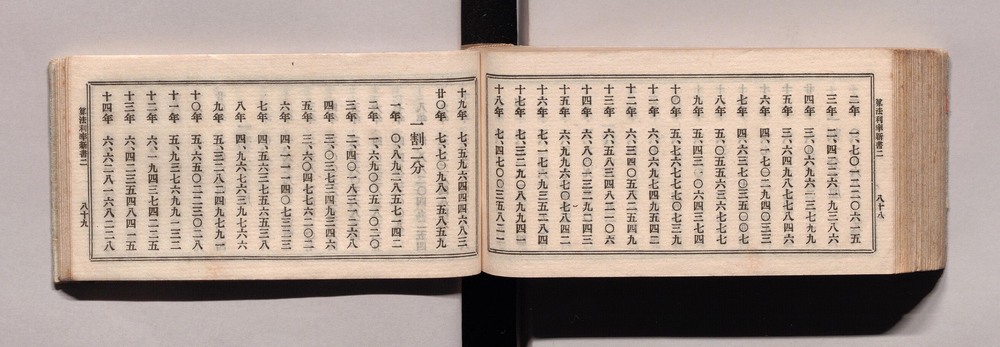 算法利率新書二
八十八
二年 一、七〇一二二〇六一五
三年 二、四二二六一九三八六
四年 三、〇六九六一三七九九
五年 三、六四九八七七八四六
六年 四、一七〇二九四〇三三
七年 四、六三七〇三五〇〇七
八年 五、〇五五六三六七七八
九年 五、四三一〇六四三七四
十〇年 五、七六七七七〇七三九
十一年 六、〇六九七四九五四二
十二年 六、三四〇五八二五四九
十三年 六、五八三四八二一〇六
十四年 六、八〇一三二九二四三
十五年 六、九九六七〇七八四二
十六年 七、一七一九三五二八四
十七年 七、三二九〇八九九四一
十八年 七、四七〇〇三五八二一
十九年 七、五九六四四四六八三
廿〇年 七、七〇九八一五八五九
一割二分
一年 〇、八九二八五七一四二
二年 一、六九〇〇五一〇二〇
三年 二、四〇一八三一二六八
四年 三、〇三七三四九三四六
五年 三、六〇四七七六二〇二
六年 四、一一一四〇七三二三
七年 四、五六三七五六五三八
八年 四、九六七六三九七六六
九年 五、三二八二四九七九一
十〇年 五、六五〇二二三〇二八
十一年 五、九三七六九九一三二
十二年 六、一九四三七四二二五
十三年 六、四二三五四八四一五
十四年 六、六二八一六八二二八
算法利率新書二
八十九